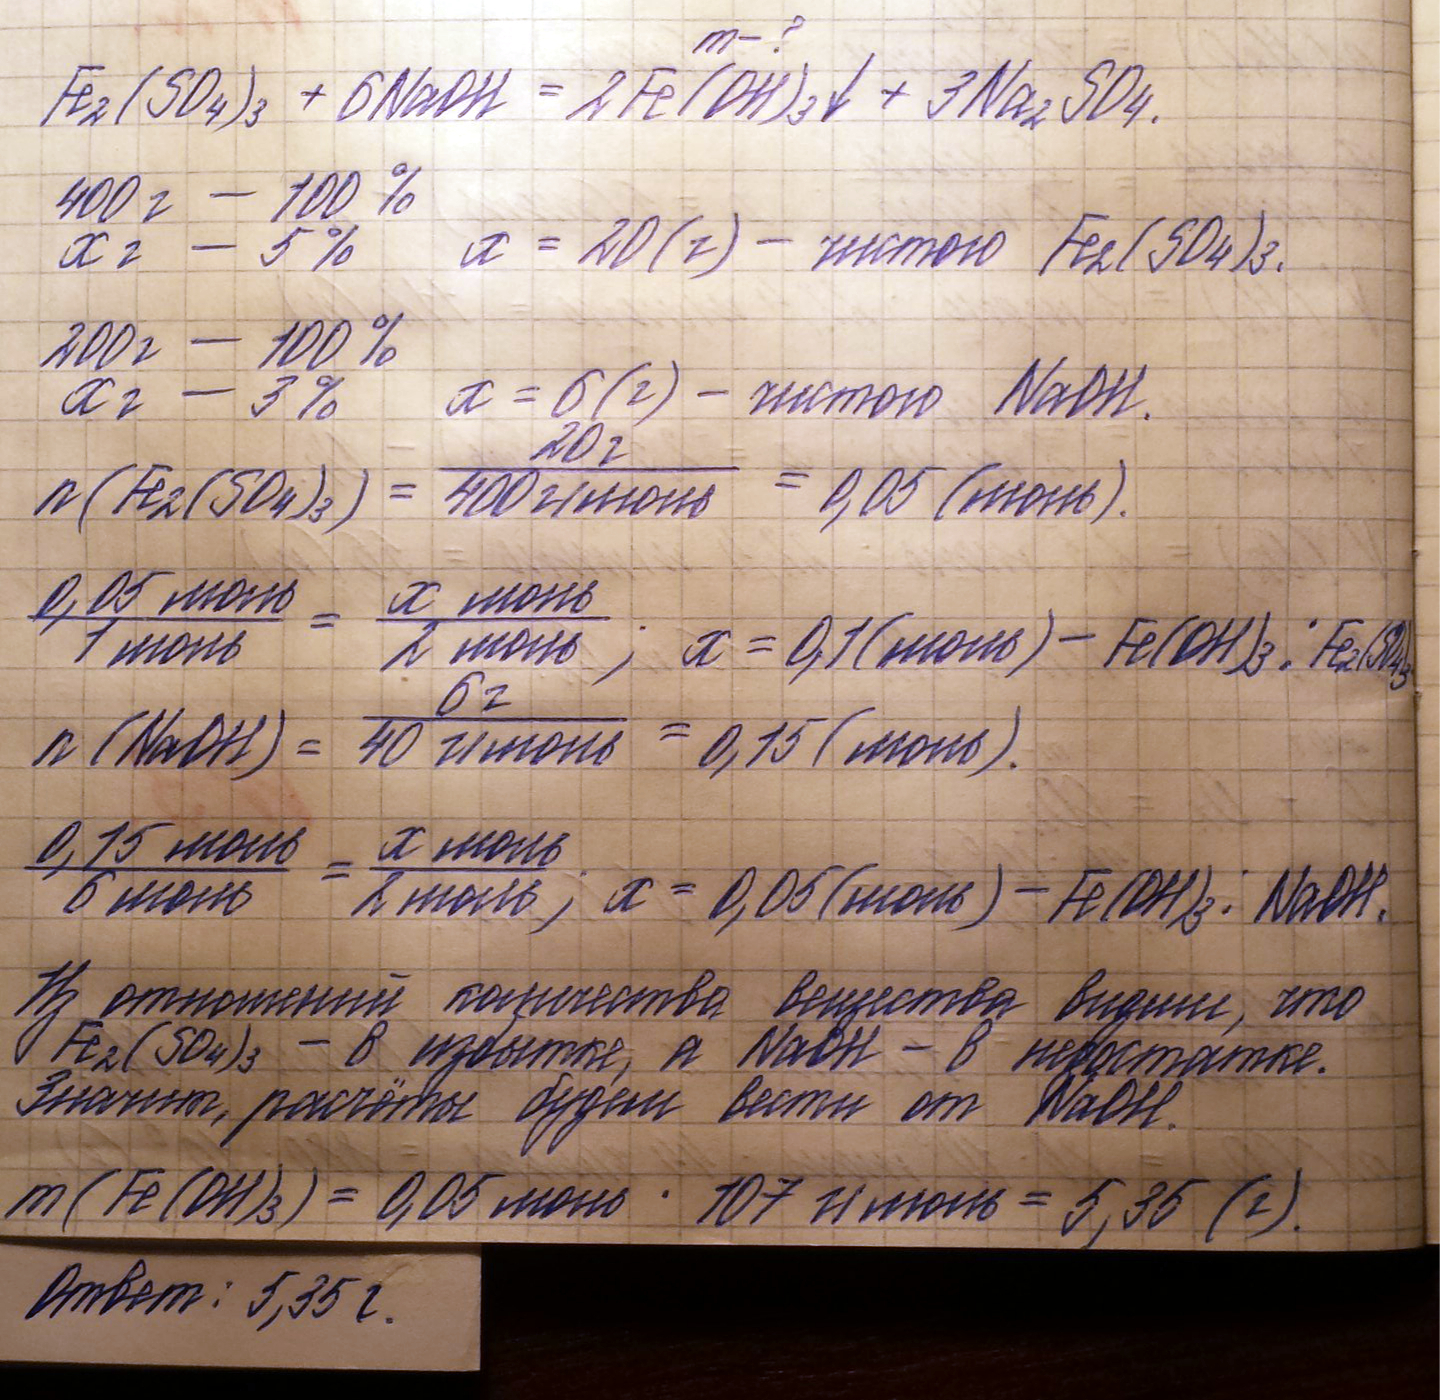 m-?
Fe₂(SO₄)₃ + 6NaOH = 2Fe(OH)₃↓ + 3Na₂SO₄.
400г — 100%
xг — 5% x = 20(г) – чистого Fe₂(SO₄)₃.
200г — 100%
xг — 3% x = 6(г) – чистого NaOH.
n(Fe₂(SO₄)₃) = 20г / 400г/моль = 0,05 (моль).
0,05 моль / 1 моль = x моль / 2 моль; x = 0,1(моль) – Fe(OH)₃ : Fe₂(SO₄)₃
n(NaOH) = 6г / 40 г/моль = 0,15 (моль).
0,15 моль / 6 моль = x моль / 2 моль; x = 0,05(моль) – Fe(OH)₃ : NaOH.
Из отношений количества вещества видим, что
Fe₂(SO₄)₃ – в избытке, а NaOH – в недостатке.
Значит, расчёты будем вести от NaOH.
m(Fe(OH)₃) = 0,05 моль · 107 г/моль = 5,35 (г).
Ответ: 5,35 г.